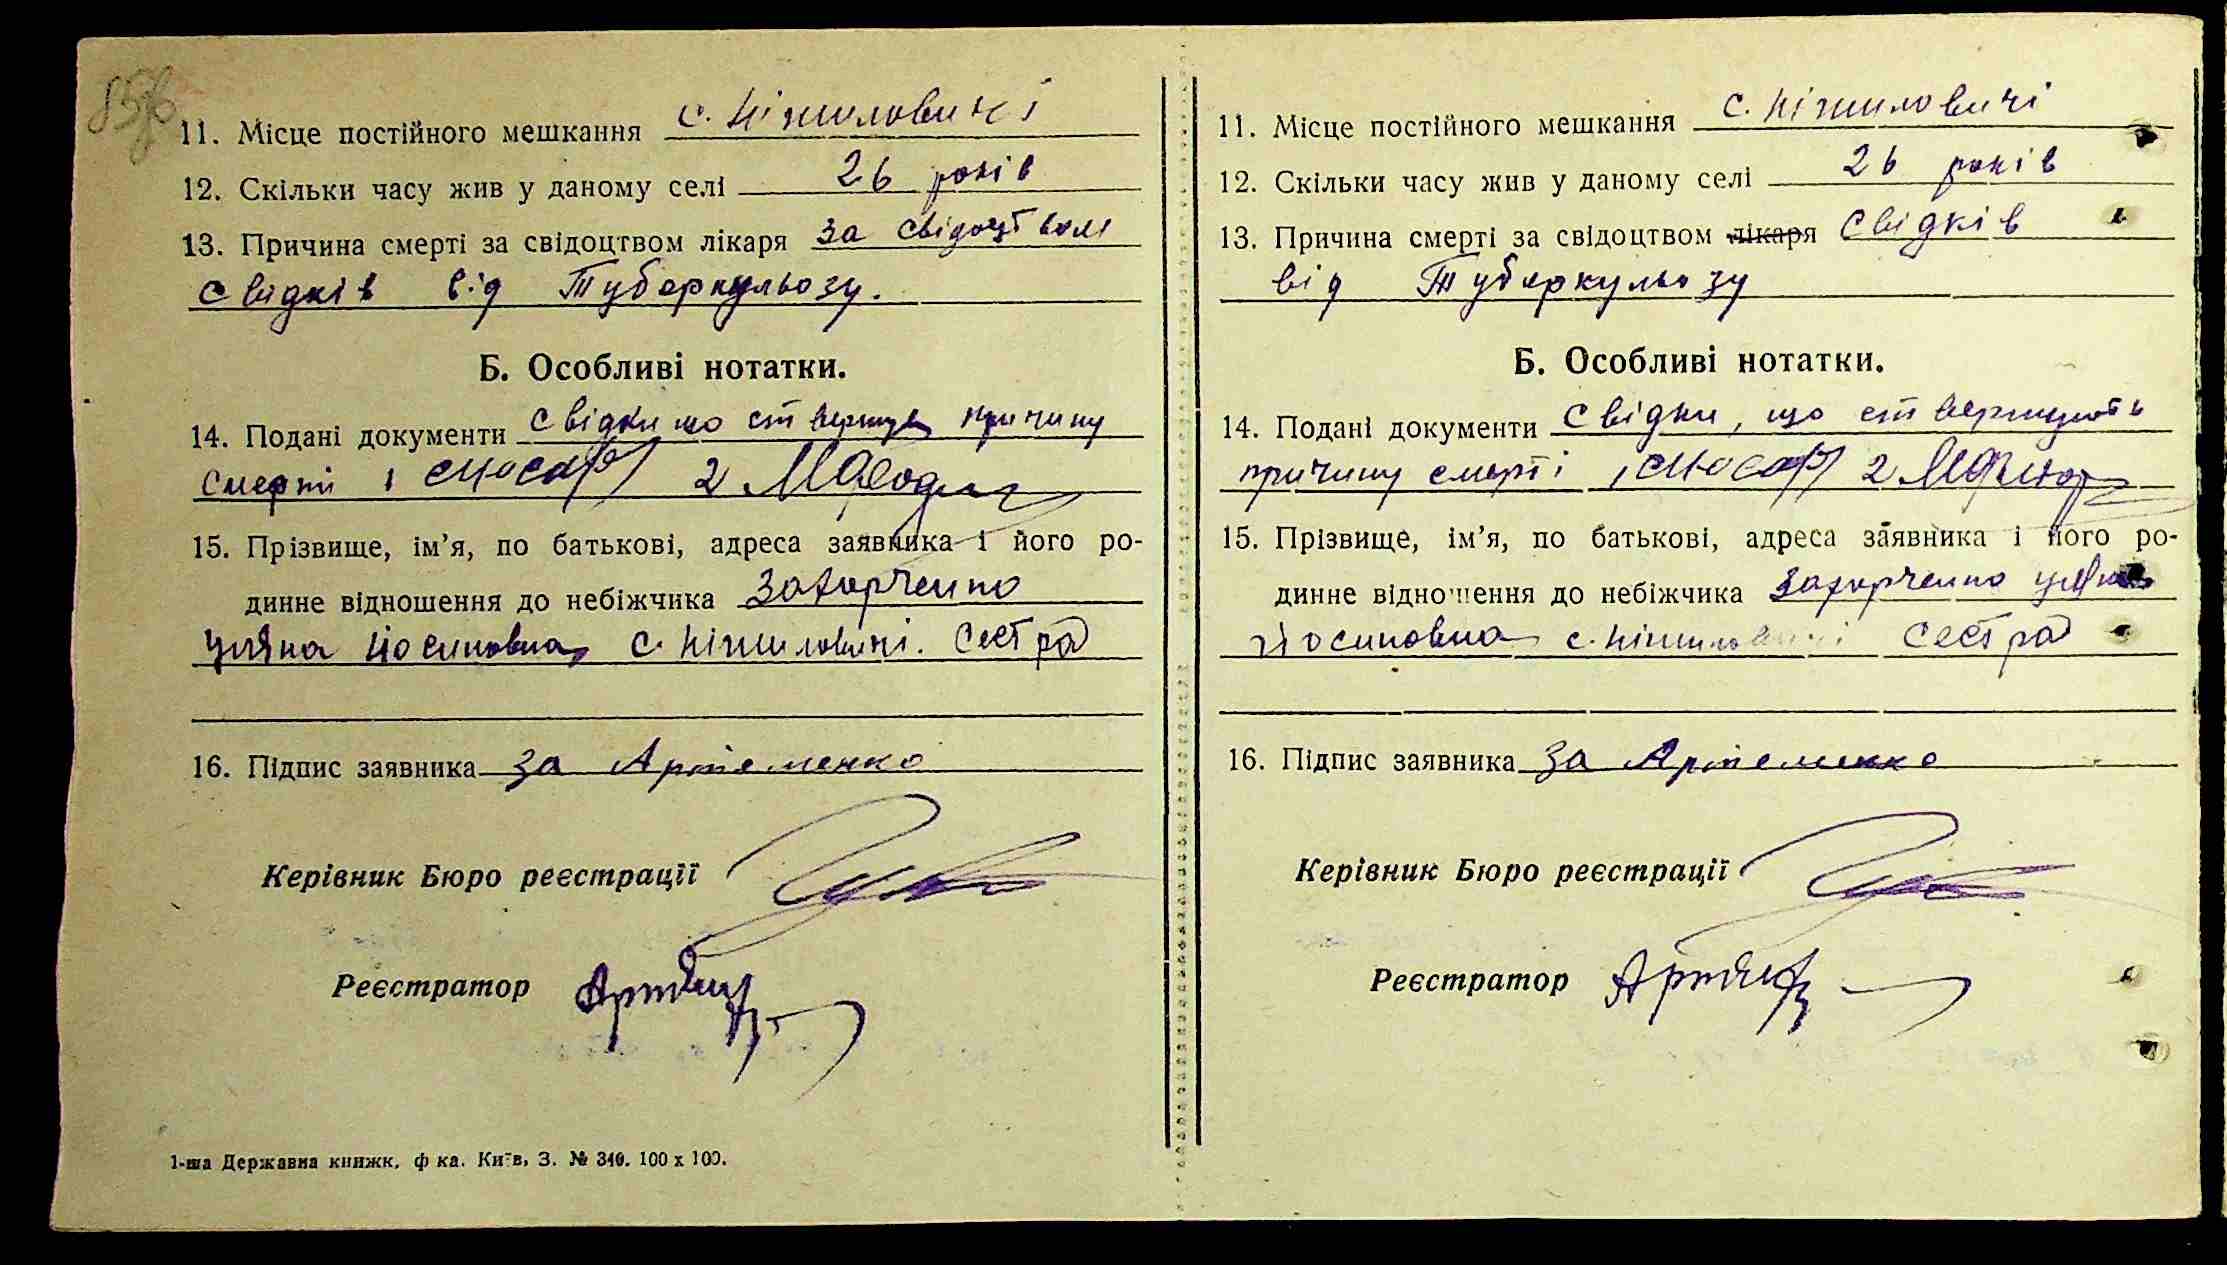 11. Місце постійного мешкання с. Ніжиловичі
12. Скільки часу жив у даному селі 26 років
13. Причина смерті за свідоцтвом лікаря за свідоцтвом
свідків від Туберкульозу.
Б. Особливі нотатки.
14. Подані документи свідки що ствержую причину
смерти 1 2
15. Прізвище, ім’я, по батькові, адреса заявника і його ро-
динне відношення до небіжчика Захарченко
Уляна Йосиповна с. Ніжиловичі. Сестра
16. Підпис заявника за Артеменко
Керівник Бюро реєстрації
Реєстратор
1-ша Державна книжк. ф ка. Київ, З. № 340. 100 х 100.
11. Місце постійного мешкання с. Ніжиловичі
12. Скільки часу жив у даному селі 26 років
13. Причина смерті за свідоцтвом лікаря свідків
від Туберкульозу
Б. Особливі нотатки.
14. Подані документи Свідки, що ствержують
причину смерті 1 2
15. Прізвище, ім’я, по батькові, адреса заявника і його ро-
динне відношення до небіжчика Захарченко Уляна
Йосиповна с. Ніжиловичі Сестра
16. Підпис заявника за Артеменко
Керівник Бюро реєстрації
Реєстратор